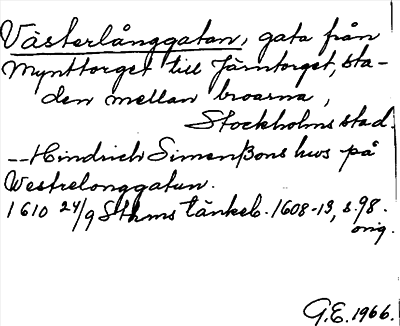 Västerlånggatan, gata från
Mynttorget till Järntorget, sta-
den mellan broarna,
Stockholms stad.
--Hindrich Simenßons hws på
Westrelonggatun.
1610 24/9 Sthms tänkeb. 1608-13, s. 98.
orig.
G.E. 1966.